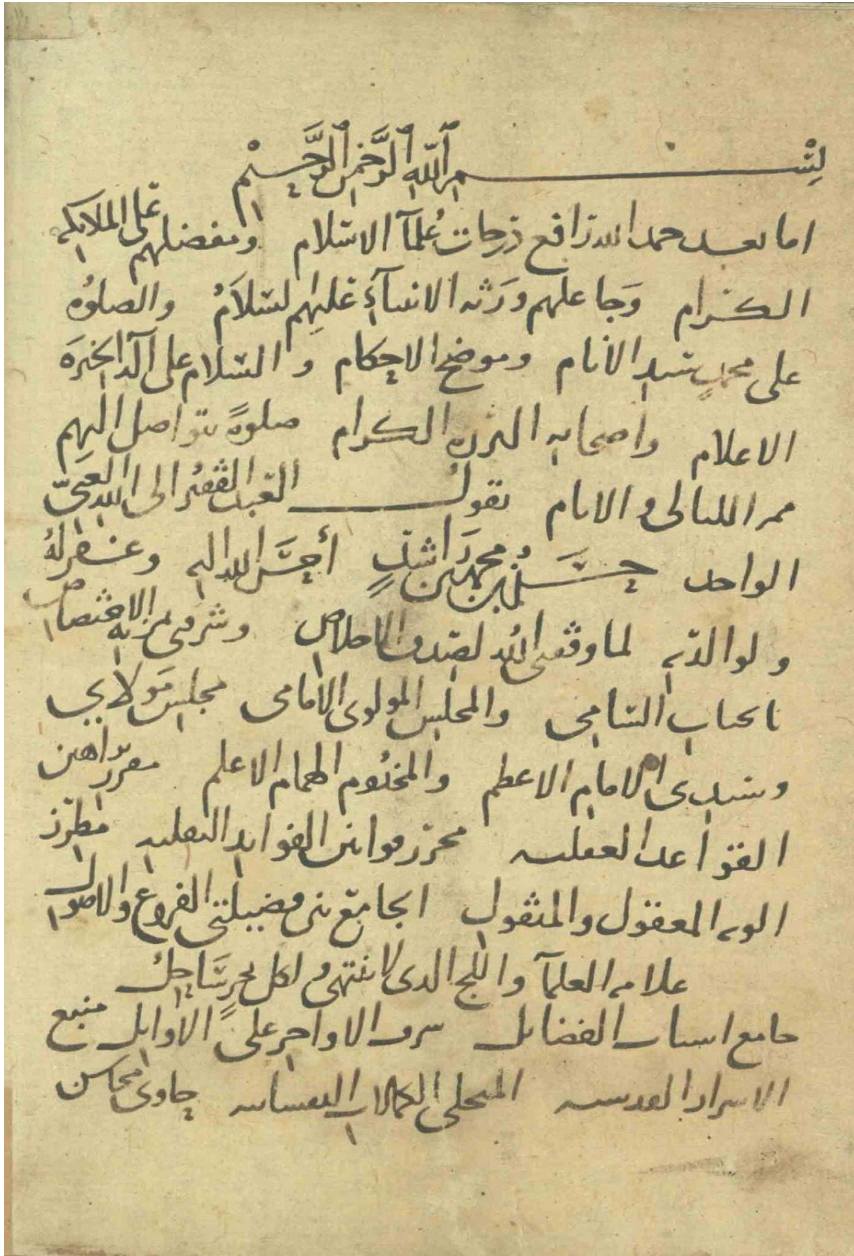 بسم الله الرحمن الرحيم
اما بعد حمد الله رافع درجات علمآ الاسلام ومفضلهم على الملايكه
الكرام وجاعلهم ورثه الانبيآء عليهم لسلام والصلوه
على محمد سيد الأنام وموضح الاحكام والسلام على آله الخيره
الاعلام واصحابه البرره الكرام صلوةً تتواصل اليهم
ممر الليالى والايام يقول العبد الفقير الى الله الغنىّ
الواحد حسن بن محمد بن راشد أحسن الله اليه وغفر له
ولوالديه لما وفقنى الله لصدق الاخلاص وشرفنى بمزية الاختصاص
بالجناب السامى والمجلس المولوى الامامى مجلس مولاىي
وسيدى الامام الاعظم والمخدوم الهمام الاعلم مقرر براهين
القواعد العقليه محرر قوانين الفوايد النقليه مطرز
الويه المعقول والمنقول الجامع بين فضيلتى الفروع والاصول
علامه العلمآ واللج الذى لا ينتهى ولكل بحرٍ ساحل
جامع اسباب الفضايل شرف الاواخر على الاوايل منبع
الاسرار القدسيه المتحلى بالكمالات النفسانيه حاوى محاسن